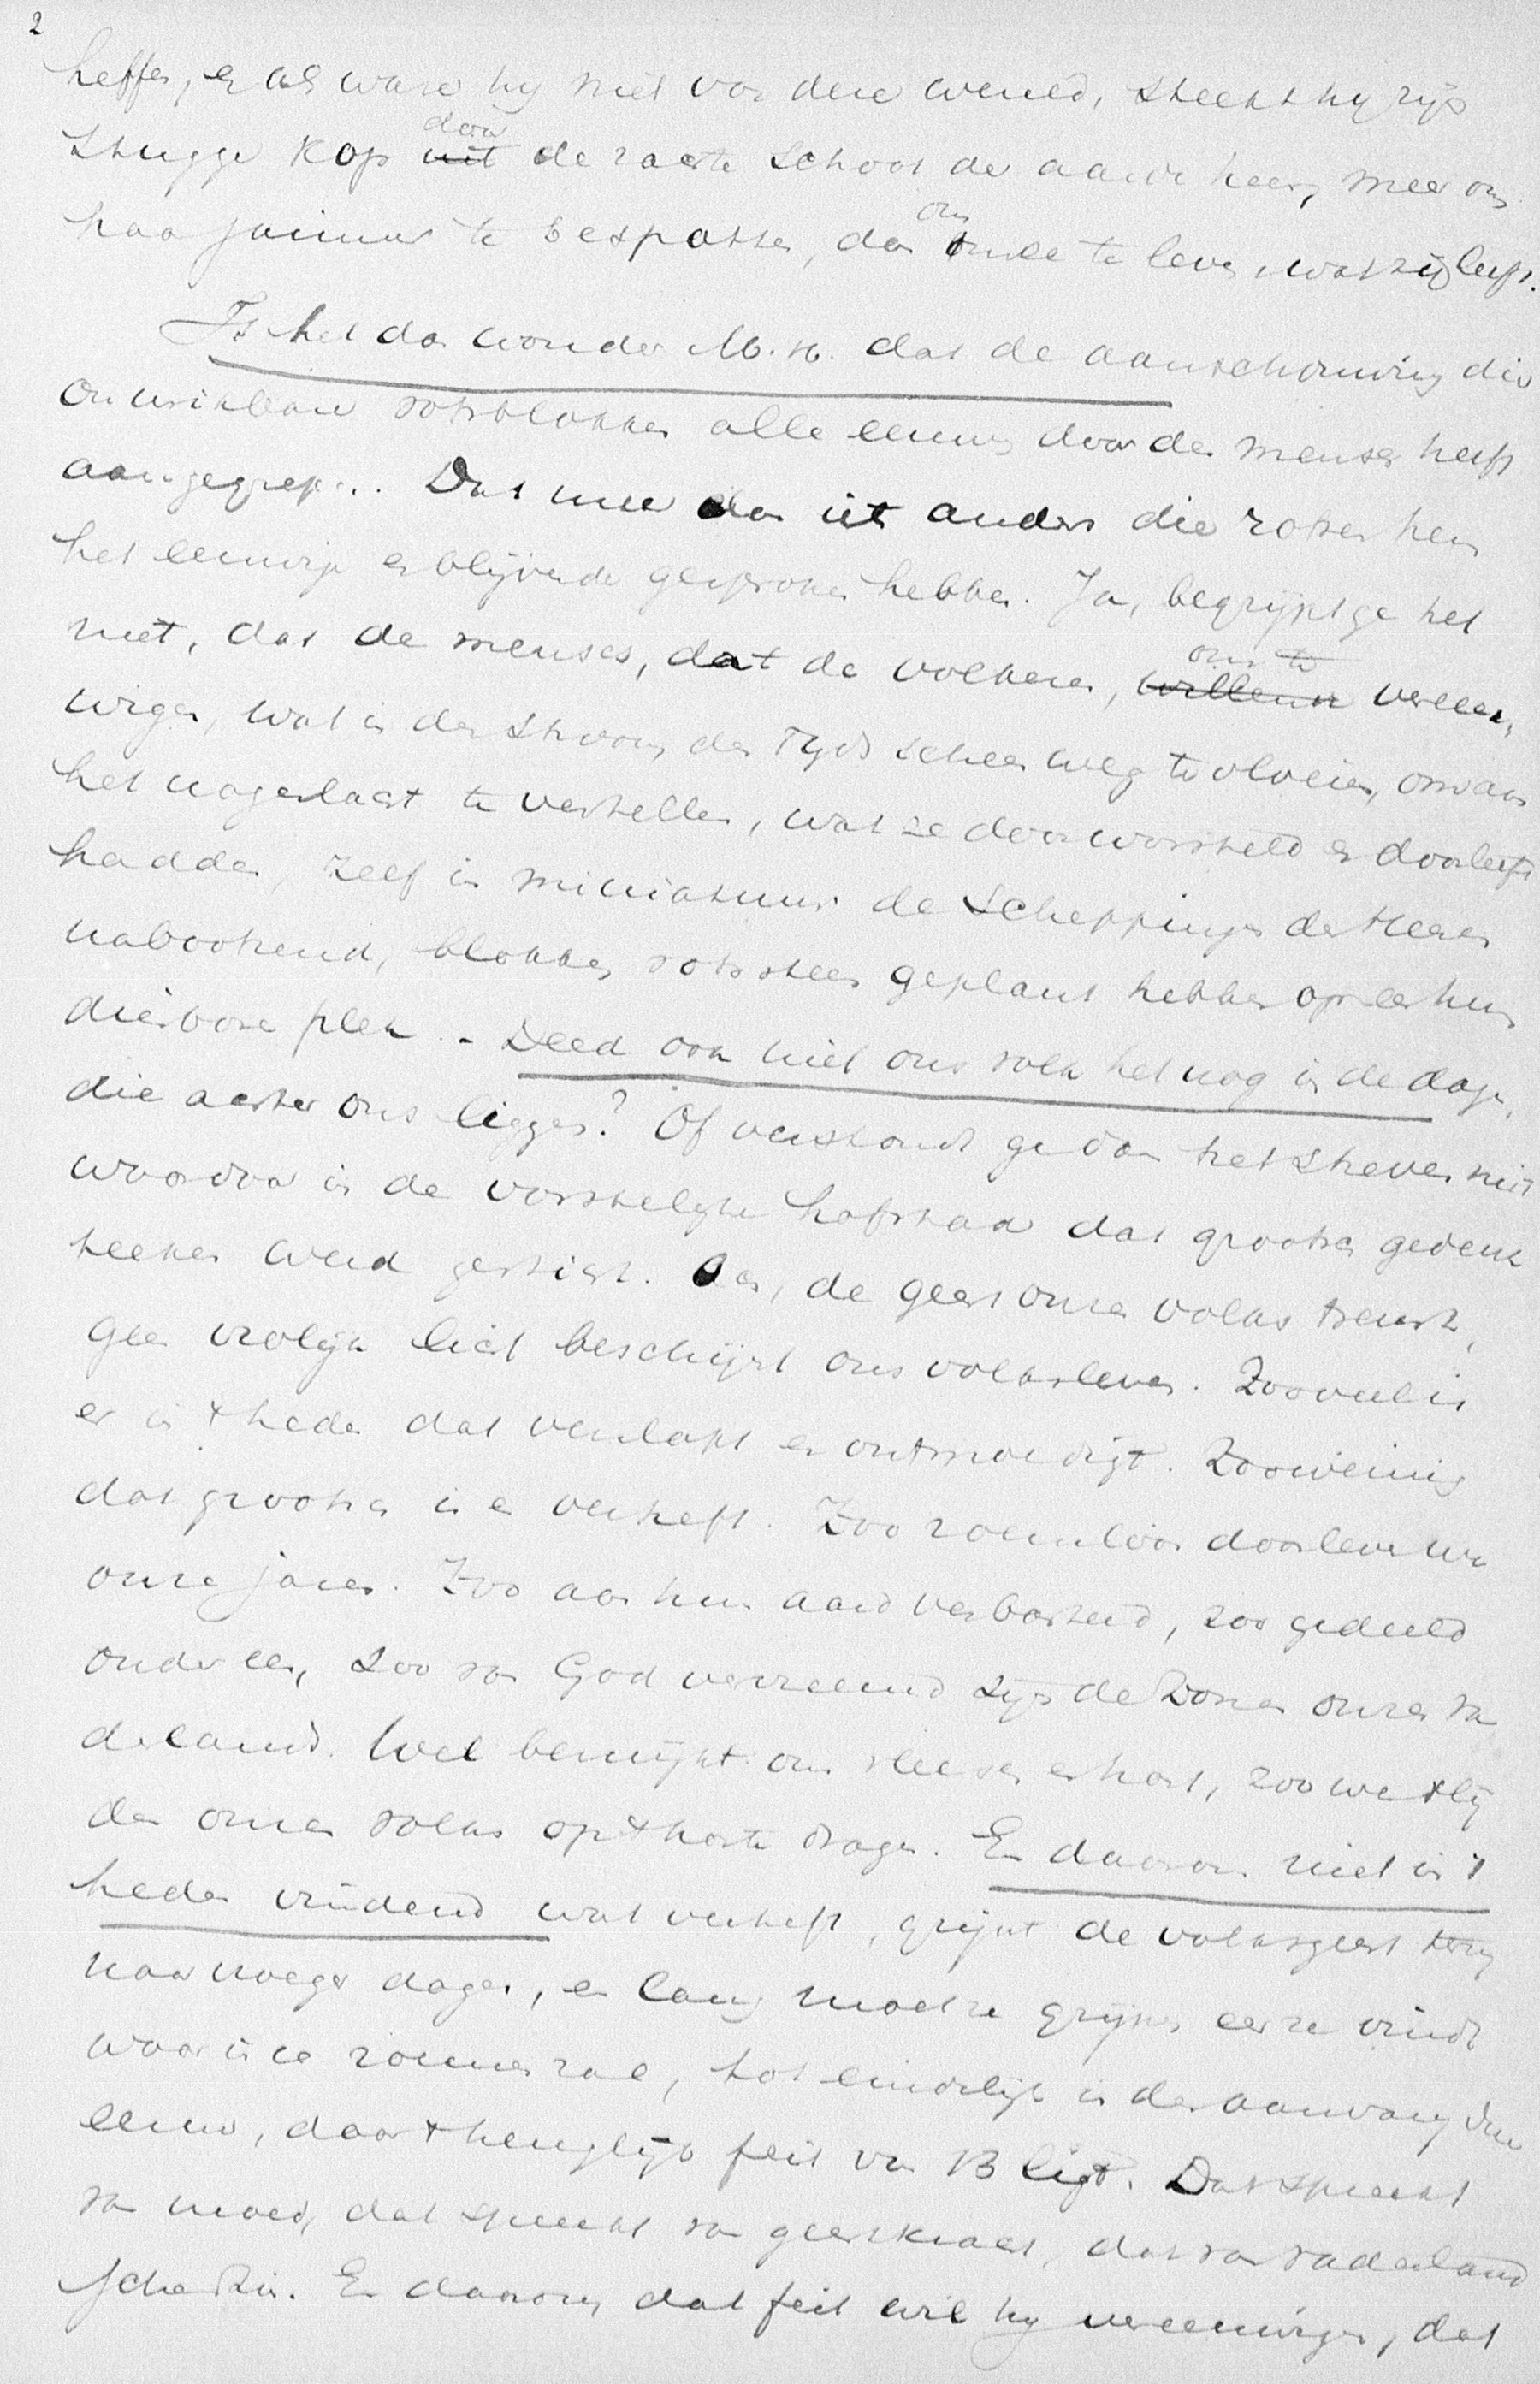 2
heffen, en als ware hij niet van deze wereld, steekt hij zijn
stugge kop uit door de zachte schoot der aarde heen, meer om
haar jammer te bespotten, dan om mee te leven wat zij leeft.
Is het dan wonder M. H. dat de aanschouwing dier
onwrikbare rotsblokken alle eeuwen door den mensch heeft
aangegrepen.. Dat meer dan iets anders die rotsen hem
het eeuwige en blijvende gesproken hebben. Ja, begrijpt ge het
niet, dat de menschen, dat de volkeren, willende om te vereeu-
wigen, wat in den stroom des Tijds scheen weg te vloeien, om aan
het nageslacht te vertellen, wat ze doorworsteld en doorleefd
hadden, zelf in miniatuur de Scheppingen des Heeren
nabootsend, blokken rotssteen geplant hebben op een hun
dierbare plek. - Deed ook niet ons volk het nog in de dagen,
die achter ons liggen? Of verstondt ge dan het streven niet
waardoor in de vorstelijke hofstad dat grootsch gedenk
teeken werd gesticht. Ach, de geest onzes volks treurt,
geen vrolijk licht beschijnt ons volksleven. Zooveel is
er in 't heden dat verslapt en ontmoedigt. Zooweinig
dat grootsch is en verheft. Zoo roemloos doorleven we
onze jaren. Zoo aan hun aard verbasterd, zoo gedeeld
onder een, zoo van God vervreemd zijn de Zonen onzes va
derlands. Wel bezwijkt ons vleesch en hart, zoo we 't lij
den onzes volks op 't harte dragen. En daarom niet in 't
heden vindend wat verheft, grijpt de volksgeest terug
naar vroeger dagen, en lang moet ze grijpen eer ze vindt
waarin ze roemen zal, tot eindelijk in den aanvang dezer
eeuw, daar 't heuglijk feit van 13 ligt. Dat spreekt
van moed, dat spreekt van geestkracht, dat van vaderland
schen zin. En daarom dat feit wil hij vereeuwigen, dat